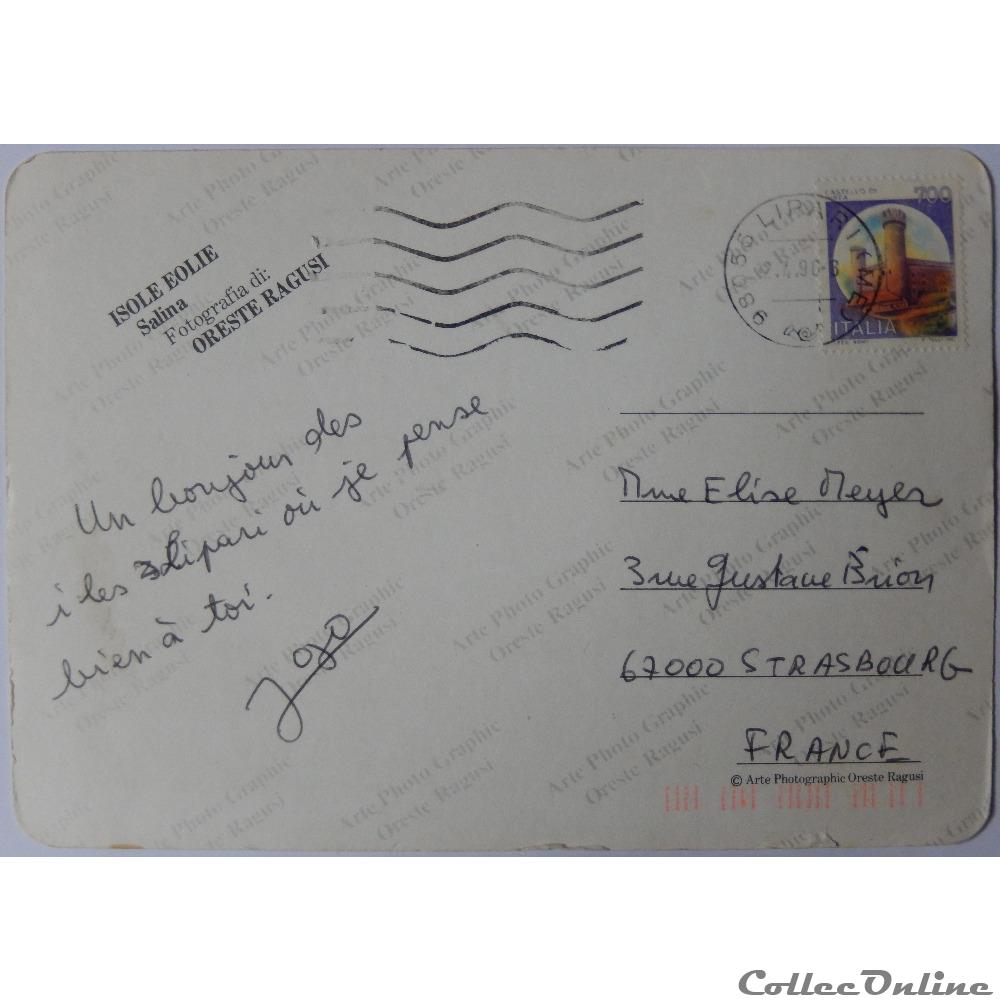 ISOLE EOLIE
Salina
Fotografia di:
ORESTE RAGUSI
98055 LIPARI (ME)
CASTELLO DI
700
ITALIA
Un bonjour des
iles Lipari où je pense
bien à toi.
Mme Elise Meyer
3 rue Gustave Brion
67000 STRASBOURG
FRANCE
© Arte Photographic Oreste Ragusi
Arte Photo Graphic
Oreste Ragusi
CollecOnline